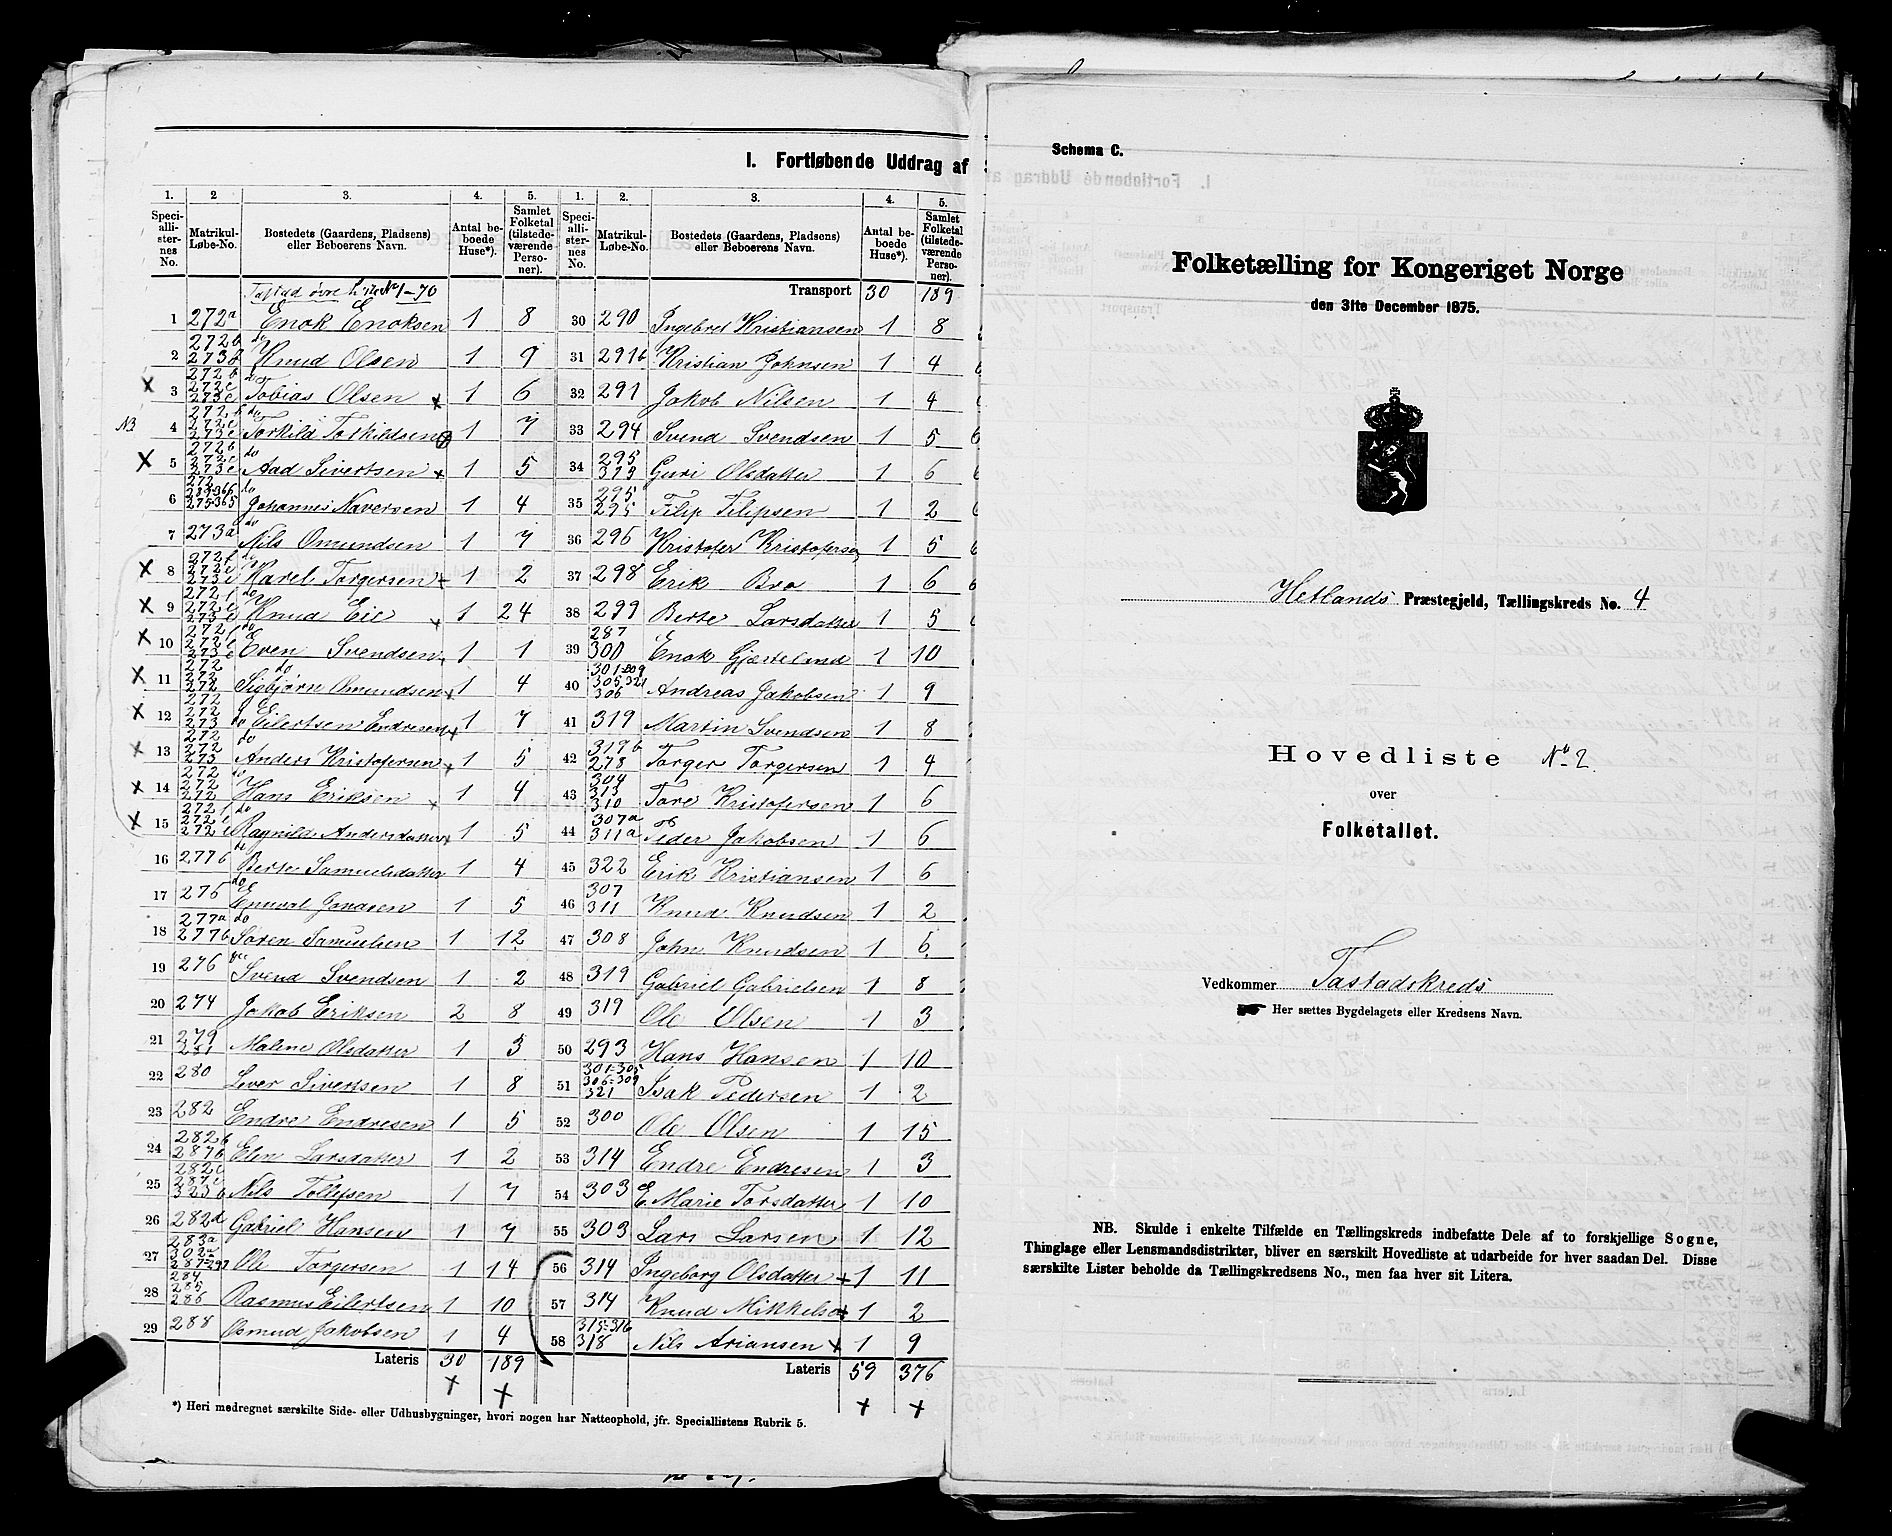 I. Fortløbende Uddrag af
1. 2 3. 4. 5. 1. 2. 3. 4. 5.
Speciallisternes No. Matrikul-Løbe-No. Bostedets (Gaardens, Pladsens) eller Beboerens Navn. Antal beboede Huse*). Samlet Folketal (tilstedeværende Personer). Speciallisternes No. Matrikul-Løbe-No. Bostedets (Gaardens, Pladsens) eller Beboerens Navn. Antal beboede Huse*). Samlet Folketal (tilstedeværende Personer).
Tastad øvre No 1-70
Transport 30 189
1 272a Enok Enoksen 1 8
2 272b do Knud Olsen 1 9
X 3 272b 272c 273c do Tobias Olsen x 1 6
NB 4 272b 272c 273c do Torkild Torkildsen 1 7
X 5 272b 272c 273c do Aad Sivertsen x 1 5
6 272 do Johannes Naversen 1 4
7 273a do Nils Omundsen 1 7
X 8 272f 272c 273c do Karel Torgersen x 1 2
X 9 272f 272c 273c do Knud Eie x 1 24
X 10 272f 272c 273c do Even Svendsen x 1 1
X 11 272 272 272 do Sigbjørn Omundsen x 1 4
X 12 272 272 273 do Eilertsen Endresen x 1 7
X 13 272 272 273 do Anders Kristofersen x 1 5
X 14 272 272 272 do Hans Eriksen x 1 4
X 15 272f 272c 272c do Ragnild Andersdatter x 1 5
16 277b do Berte Samuelsdatter 1 4
17 276 do 1 5
18 277a 277b do Søren Samuelsen 1 12
19 276 do Svend Svendsen 1 2
20 274 Jakob Eriksen 2 8
21 279 281 Malene Olsdatter 1 3
22 280 Sever Sivertsen 1 8
23 282 Endre Endresen 1 5
24 282b 287b Elen Larsdatter 1 2
25 282c 287c 323b Nils Tollefsen 1 7
26 282d Gabriel Hansen 1 7
27 283a 302a 287-297 Ole Torgersen 1 14
28 284 285 286 Rasmus Eilertsen 1 10
29 288 Osmund Jakobsen 1 4
Lateris 30 189
x x
30 290 Ingebret Kristiansen 1 8
31 291b Kristian Johnsen 1 4
32 291 Jakob Nilsen 1 4
33 294 Svend Svendsen 1 5
34 295 313 Guri Olsdatter 1 6
35 295 295 Filip Filipsen 1 2
36 296 Kristofer Kristofersen 1 5
37 298 Erik Bro 1 6
38 299 Berte Larsdatter 1 5
39 287 300 Enok Gjerteland 1 10
40 301-309 305 321 306 Andreas Jakobsen 1 9
41 319 Martin Svendsen 1 8
42 319b 278 Torger Torgersen 1 4
43 304 313 310 Tore Kristofersen 1 6
44 307a 311a Peder Jakobsen 1 6
45 322 Erik Kristiansen 1 6
46 307 311 Knud Knudsen 1 2
47 308 John Knudsen 1 6
48 319 Gabriel Gabrielsen 1 8
49 319 Ole Olsen 1 3
50 293 Hans Hansen 1 10
51 301-305 306-309 321 Isak Pedersen 1 2
52 300 Ole Olsen 1 15
53 314 Endre Endresen 1 3
54 303 E Marie Torsdatter 1 10
55 303 Lars Larsen 1 12
56 314 Ingeborg Olsdatter x 1 11
57 314 Knud Mikkelsen x 1 2
58 315-316 318 Nils Ariansen x 1 9
Lateris 59 376
x x
*) Heri medregnet særskilte Side- eller Udhusbygninger, hvori nogen har Natteophold, jfr. Speciallistens Rubrik 5.
Schema C.
Folketælling for Kongeriget Norge
den 31te December 1875.
Hetlands Præstegjeld, Tællingskreds No. 4
Hovedliste No 2.
over
Folketallet.
Vedkommer Tastadskreds
Her sættes Bygdelagets eller Kredsens Navn.
NB. Skulde i enkelte Tilfælde en Tællingskreds indbefatte Dele af to forskjellige Sogne,
Thinglage eller Lensmandsdistrikter, bliver en særskilt Hovedliste at udarbeide for hver saadan Del. Disse
særskilte Lister beholde da Tællingskredsens No., men faa hver sit Litera.